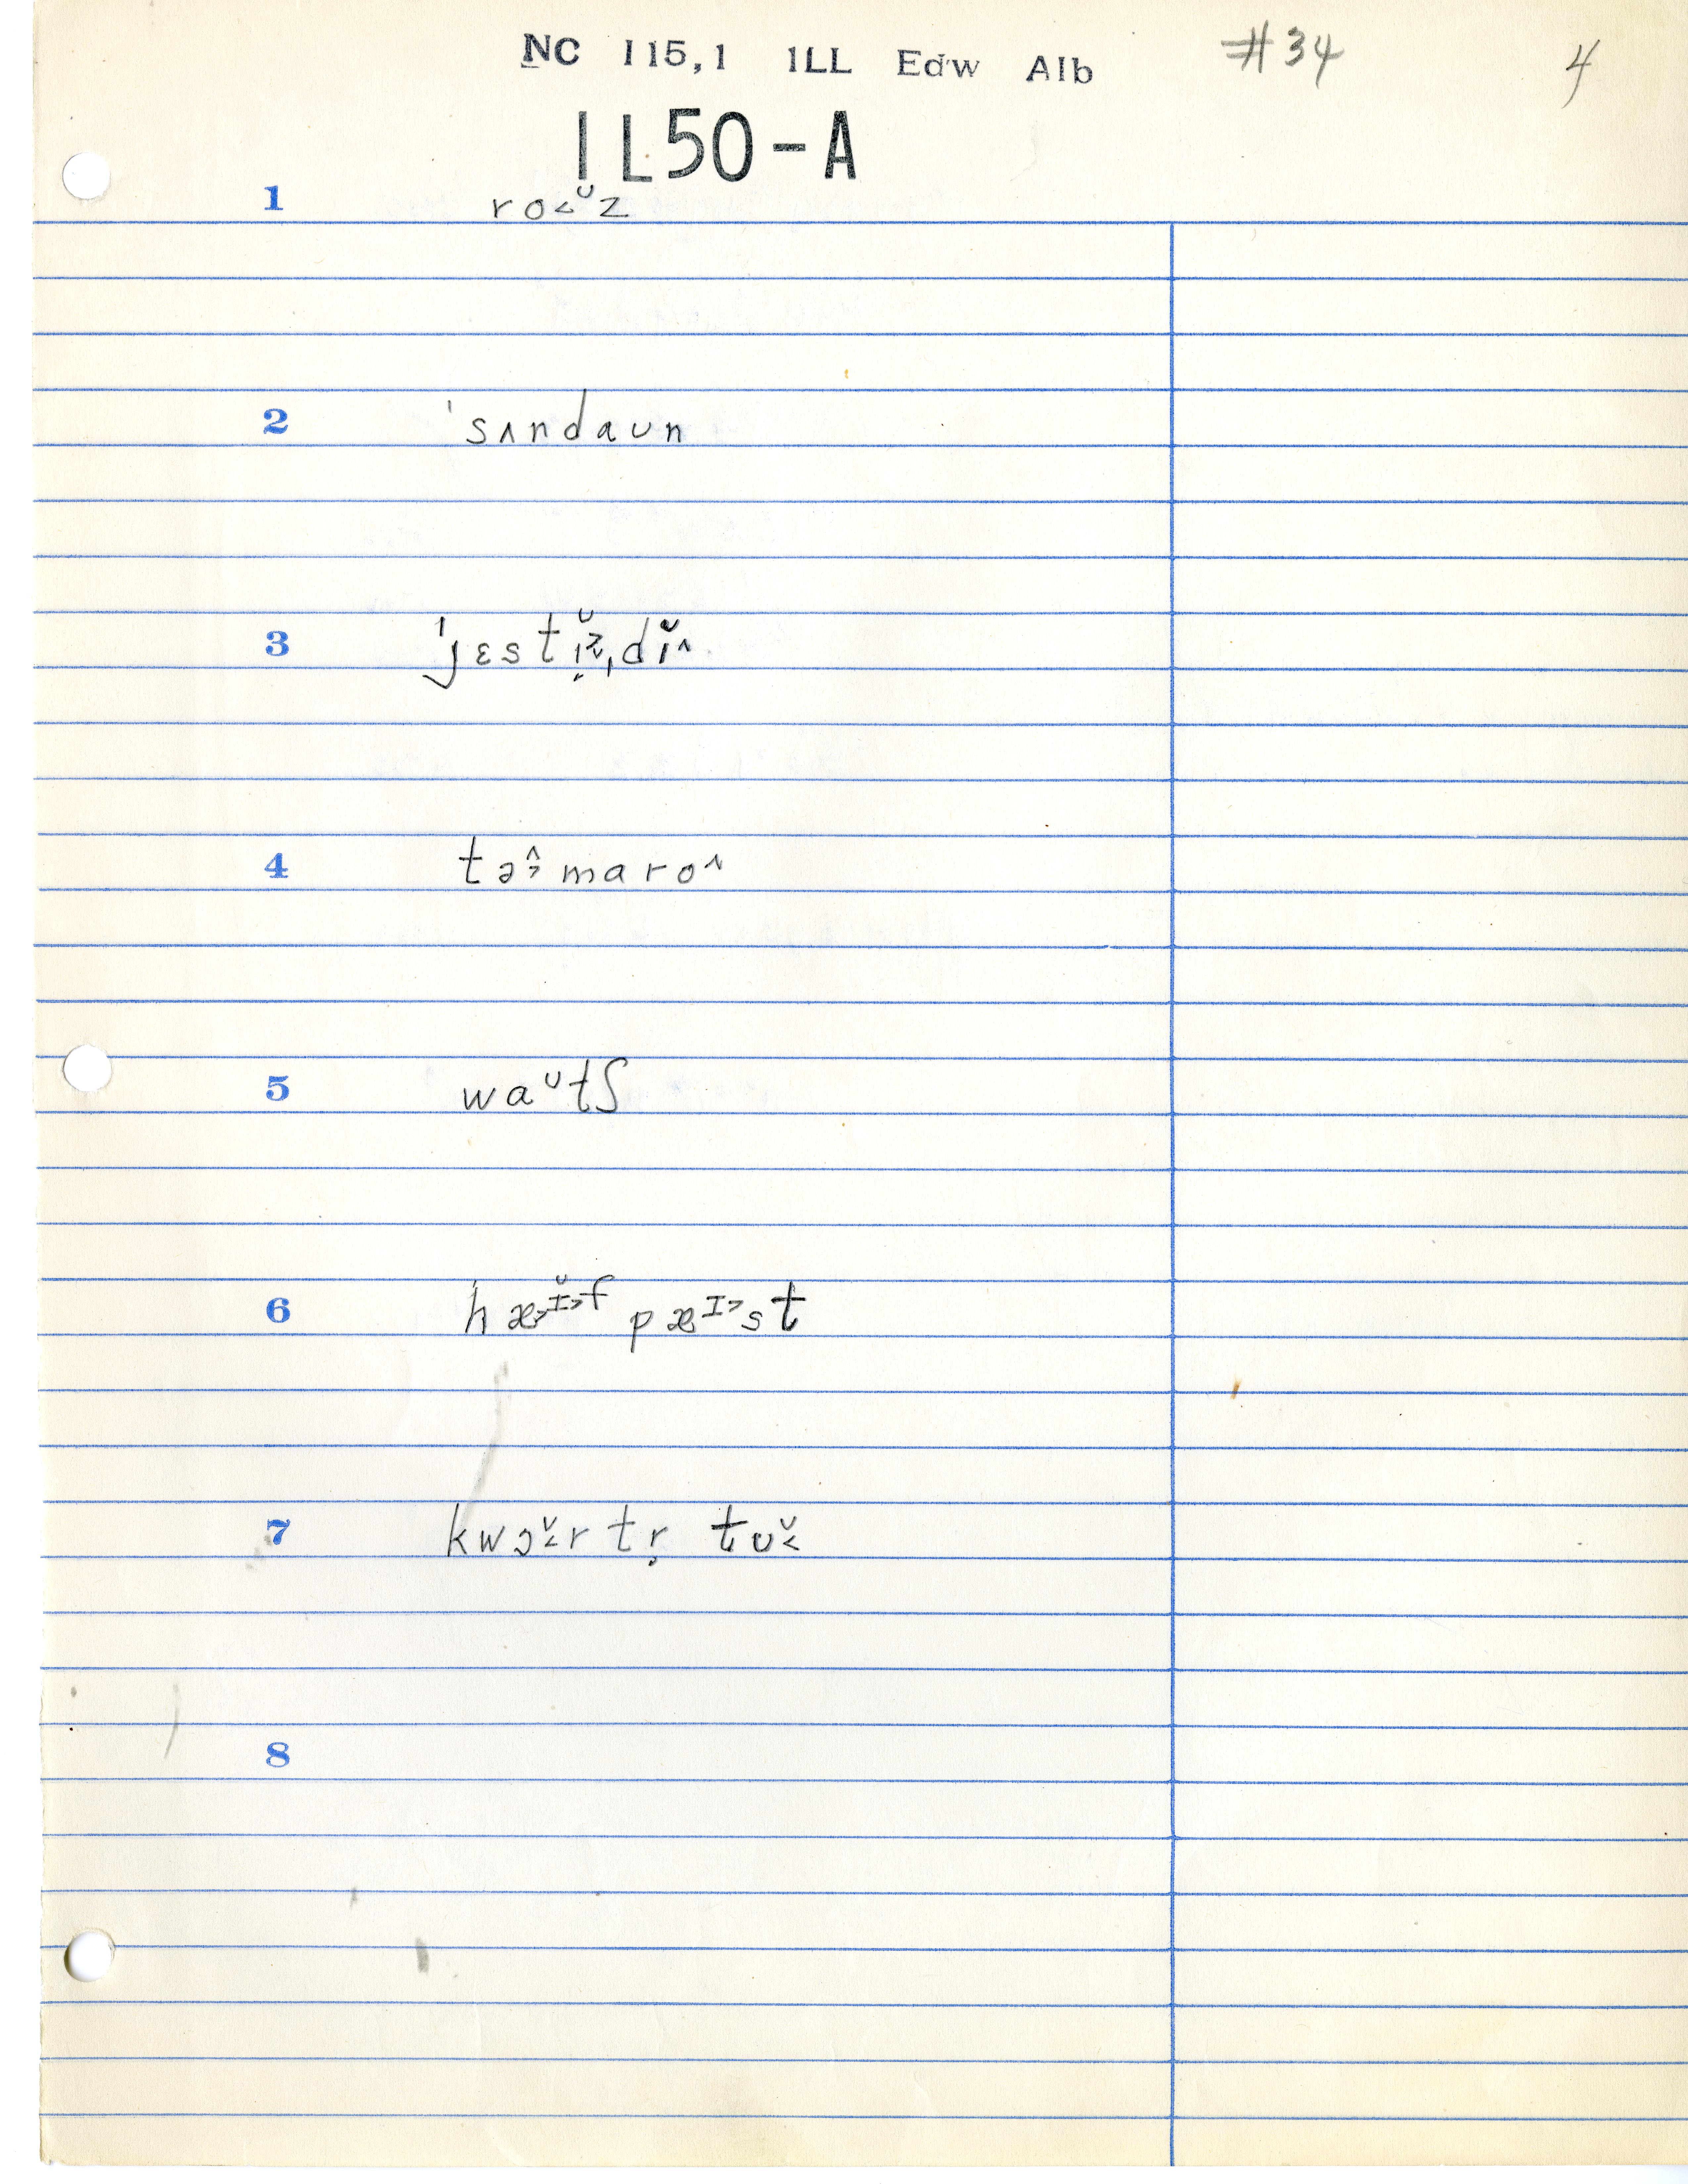 NC 115,1 ILL Edw Alb #34 4
IL50-A
1 ro˂̆z
2 ˈsʌndaʊn
3 ˈjɛstɪ̣̆˞ˌdĭ^
4 tə˃̂maro^
5 waᴗtʃ
6 hæ˃ɪ̆˃f pæɪ˃st
7 kwɔ˂̆r tṛ tʊ˂̆
8